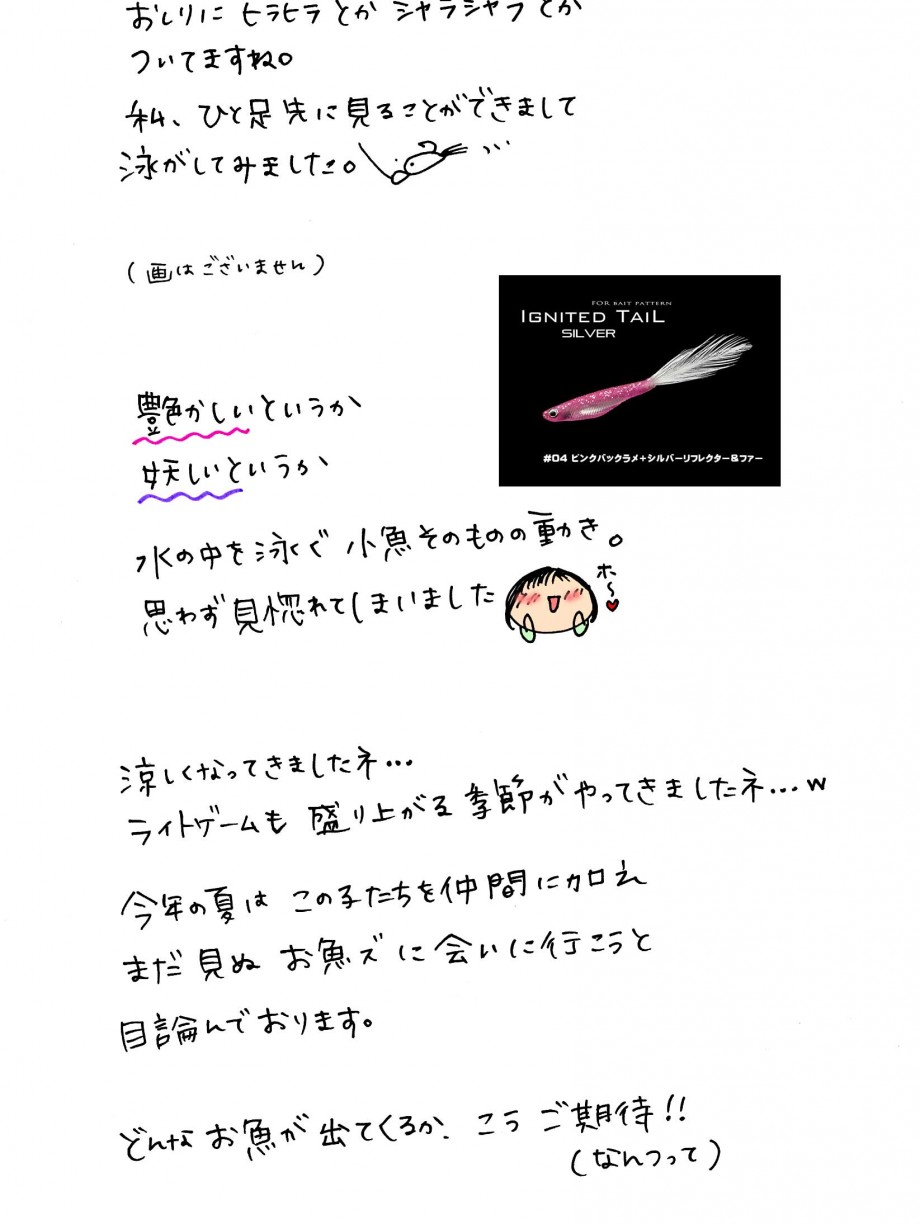 おしりに ヒラヒラ とか シャラシャラ とか
ついてますね。
私、ひと足先に見ることができまして
泳がしてみました。
(画はございません)
FOR BAIT PATTERN
IGNITED TAIL
SILVER
#04 ピンクバックラメ+シルバーリフレクター&ファー
艶かしいというか
妖しいというか
水の中を泳ぐ 小魚そのものの動き。
思わず見惚れてしまいました
ホ〜♥
涼しくなってきましたネ…
ライトゲームも 盛り上がる 季節がやってきましたネ…w
今年の夏は この子たちを仲間に加え
まだ見ぬ お魚ズに会いに行こうと
目論んでおります。
どんなお魚が出てくるか、こうご期待!!
(なんつって)